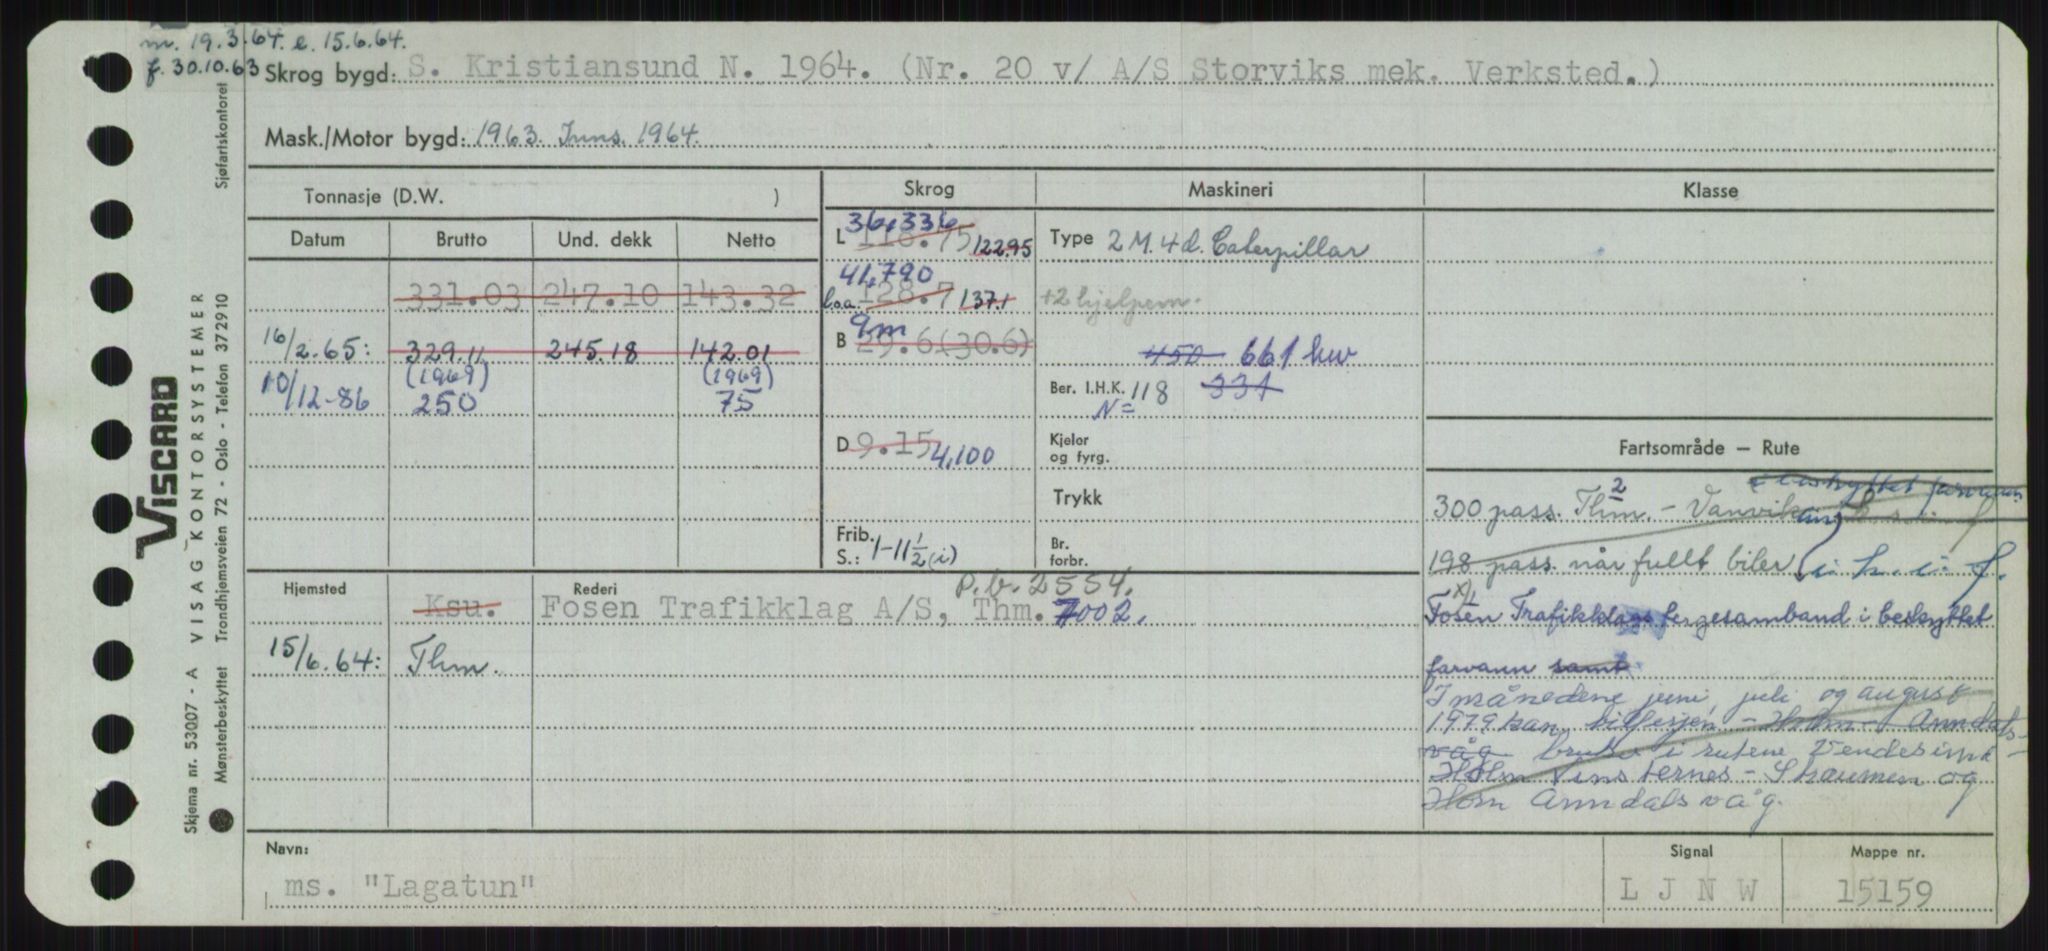 m. 19.3.64. e. 15.6.64.
f. 30.10.63
Skrog bygd: S. Kristiansund N. 1964. (Nr. 20 v/ A/S Storviks mek. Verksted.)
Mask./Motor bygd: 1963. Inns. 1964.
Tonnasje (D.W. )
Skrog
Maskineri
Klasse
Datum Brutto Und. dekk Netto
331.03 247.10 143.32
16/2.65: 329.11 245.18 142.01
(1969) (1969)
10/12-86 250 75
36,336
L 118.75 122.95
41,790
l.o.a. 128.7 137.1
9m
B 29.6 (30.6)
D 9.15 4,100
Frib.
S.: 1-11½ (i)
Type 2 M. 4 d. Caterpillar
+2 hjelpem.
450 661 kw
Ber. I.H.K. 118 331
N=
Kjeler
og fyrg.
Trykk
Br.
forbr.
Fartsområde – Rute
i beskyttet farvann
300 pass. Thm. - Vanvikan
198 pass. når fullt biler i h. i. f.
x) Fosen Trafikklags fergesamband i beskyttet
farvann samt
I månedene juni, juli og august
1979 kan bilfergen - Holm - Anndals-
våg bruke i rutene Vendesund -
Holm Vennesund -
Horn Anndalsvåg.
Hjemsted
Rederi
p.b. 2554.
Ksu. Fosen Trafikklag A/S, Thm. 7002.
15/6.64: Thm.
Navn:
ms. "Lagatun"
Signal
L J N W
Mappe nr.
15159
Sjøfartskontoret
VISCARD
VISAG KONTORSYSTEMER
Trondhjemsveien 72 - Oslo - Telefon 372910
Skjema nr. 53007 - A
Mønsterbeskyttet